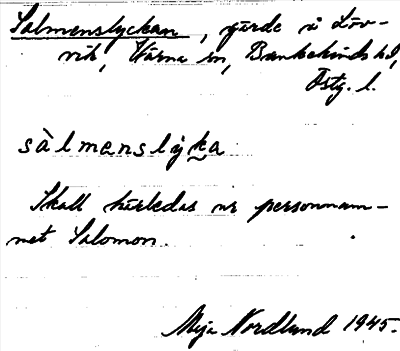 Salmenslyckan, gärde å Löv-
vik, Värna sn, Bankekinds hd,
Östg. l.
sàlmenslyka
Skall härledas ur personnam-
net Salomon.
Maja Nordlund 1945.